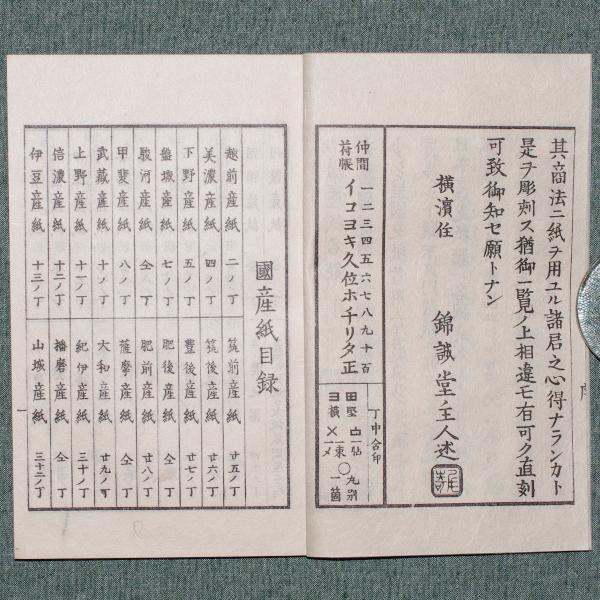 其商法ニ紙ヲ用ユル諸君之心得ナランカト
是ヲ彫刻ス猶御一覧ノ上相違モ右可ク直刻
可致御知セ願トナン
横濱任
錦誠堂主人述
仲間
符帳
一二三四五六七八九十百
イコヨキ久位ホチリタ正
丁中合印
田竪 一〆
ヨ横 〤一束 一メ
〇丸別 一箇
國産紙目録
越前産紙 二ノ丁
美濃産紙 四ノ丁
下野産紙 五ノ丁
盤城産紙 七ノ丁
駿河産紙 仝ノ丁
甲斐産紙 八ノ丁
武蔵産紙 十ノ丁
上野産紙 十一ノ丁
信濃産紙 十二ノ丁
伊豆産紙 十三ノ丁
筑前産紙 廿五ノ丁
筑後産紙 廿六ノ丁
豊後産紙 廿七ノ丁
肥後産紙 仝ノ丁
肥前産紙 廿八ノ丁
薩摩産紙 仝ノ丁
大和産紙 廿九ノ丁
紀伊産紙 三十ノ丁
播磨産紙 仝ノ丁
山城産紙 三十二ノ丁
一